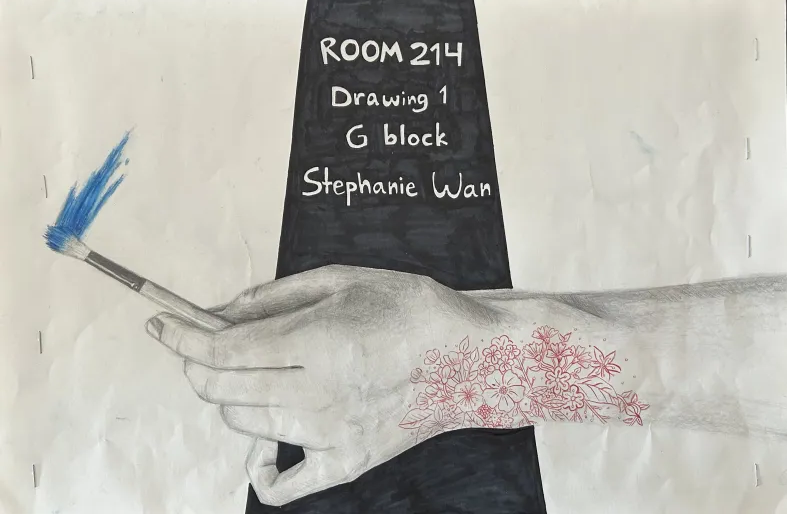 ROOM 214
Drawing 1
G block
Stephanie Wan